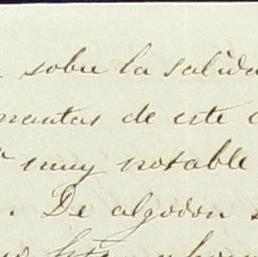 sobre la salida
mantas de este
muy notable
De algodon